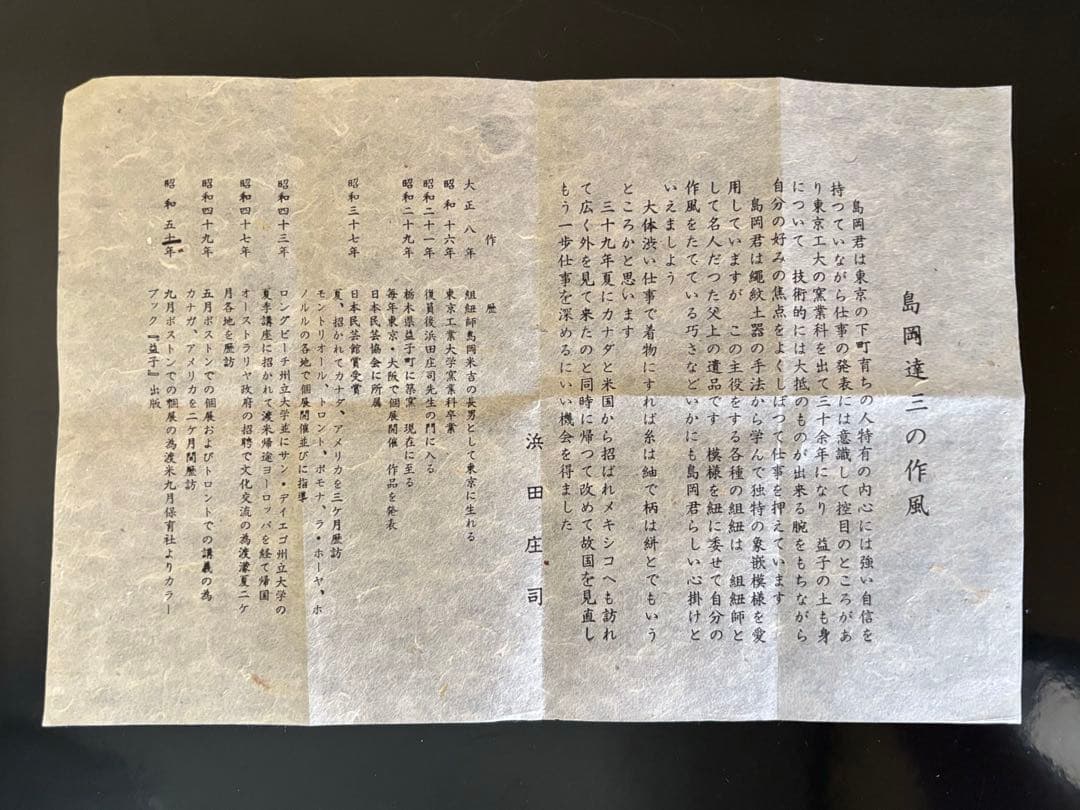 島岡達三の作風
島岡君は東京の下町育ちの人特有の内心には強い自信を
持つていながら仕事の発表には意識して控目のところがあ
り東京工大の窯業科を出て三十余年になり 益子の土も身
について 技術的には大抵のものが出来る腕をもちながら
自分の好みの焦点をよくしぼつて仕事を押えています
島岡君は縄紋土器の手法から学んで独特の象嵌模様を愛
用していますが この主役をする各種の組紐は 組紐師と
して名人だつた父上の遺品です 模様を紐に委せて自分の
作風をたてている巧さなどいかにも島岡君らしい心掛けと
いえましよう
大体渋い仕事で着物にすれば糸は紬で柄は絣とでもいう
ところかと思います
三十九年夏にカナダと米国から招ばれメキシコへも訪れ
て広く外を見て来たのと同時に帰つて改めて故国を見直し
もう一歩仕事を深めるにいい機会を得ました
浜田庄司
作歴
大正八年 組紐師島岡米吉の長男として東京に生れる
昭和十六年 東京工業大学窯業科卒業
昭和二十一年 復員後浜田庄司先生の門に入る
昭和二十九年 栃木県益子町に築窯 現在に至る
毎年東京・大阪で個展開催 作品を発表
日本民芸協会に所属
昭和三十七年 日本民芸館賞受賞
夏、招かれてカナダ、アメリカを三ケ月歴訪
モントリオール、トロント、ポモナ、ラ・ホーヤ、ホ
ノルルの各地で個展開催並びに指導
昭和四十三年 ロングビーチ州立大学並にサン・ディエゴ州立大学の
夏季講座に招かれて渡米帰途ヨーロッパを経て帰国
昭和四十七年 オーストラリヤ政府の招聘で文化交流の為渡濠夏二ケ
月各地を歴訪
昭和四十九年 五月ボストンでの個展およびトロントでの講義の為
カナダ、アメリカを二ケ月間歴訪
昭和五十年 九月ボストンでの個展の為渡米九月保育社よりカラー
ブック『益子』出版